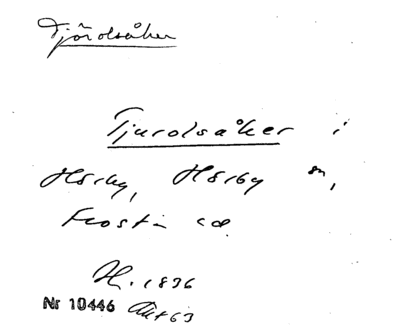 Tjörolsåker
Tjurolsåker i
Hörby, Hörby sn,
Frosta hd.
H. 1836
Nr 10446 Akt 63